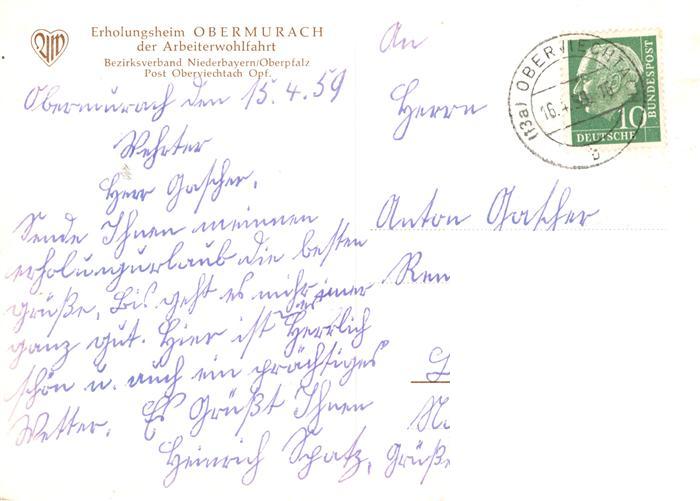 Erholungsheim OBERMURACH
der Arbeiterwohlfahrt
Bezirksverband Niederbayern/Oberpfalz
Post Oberviechtach Opf.
Obermurach den 15.4.59
Wehrter
Herr Gascher.
Sende Ihnen meinnen
erholungurlaub die besten
Grüße, Bis geht es mihr imer
ganz gut. Hier ist es Herrlich
schön u. auch ein prächtiges
Wetter. Es Grüßt Ihnen
Heinrich Spatz, Grüße
An
Herrn
Anton Gascher
Ren
G
(13a) OBERVIECHTACH
16.4.
b
10
DEUTSCHE
BUNDESPOST